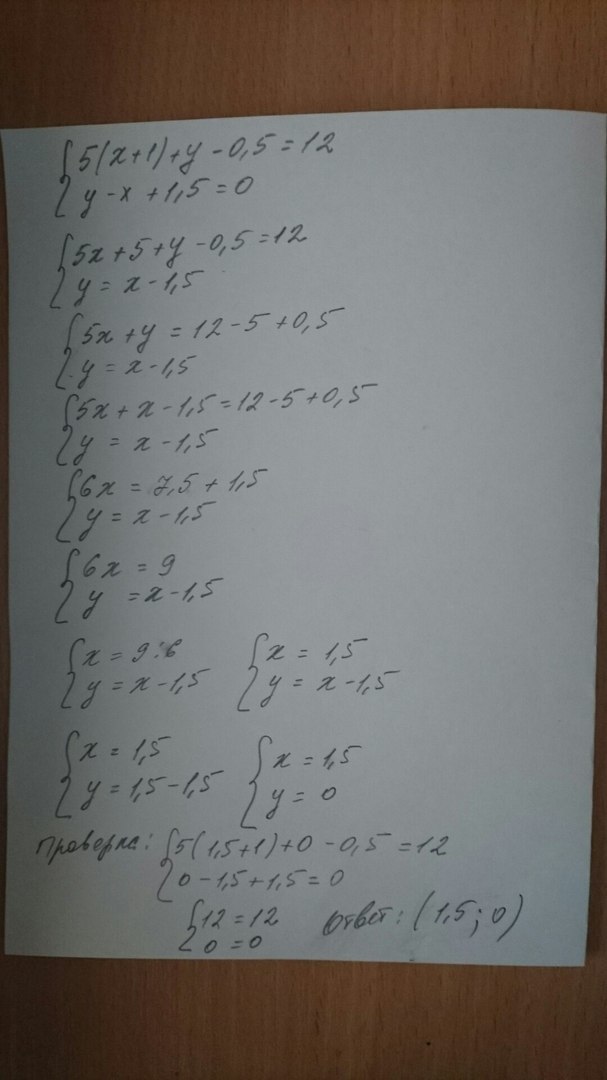 5(x+1)+y-0,5=12
y-x+1,5=0
5x+5+y-0,5=12
y=x-1,5
5x+y=12-5+0,5
y=x-1,5
5x+x-1,5=12-5+0,5
y=x-1,5
6x=7,5+1,5
y=x-1,5
6x=9
y=x-1,5
x=9:6
y=x-1,5
x=1,5
y=x-1,5
x=1,5
y=1,5-1,5
x=1,5
y=0
проверка: 5(1,5+1)+0-0,5=12
0-1,5+1,5=0
12=12
0=0
Ответ: (1,5;0)